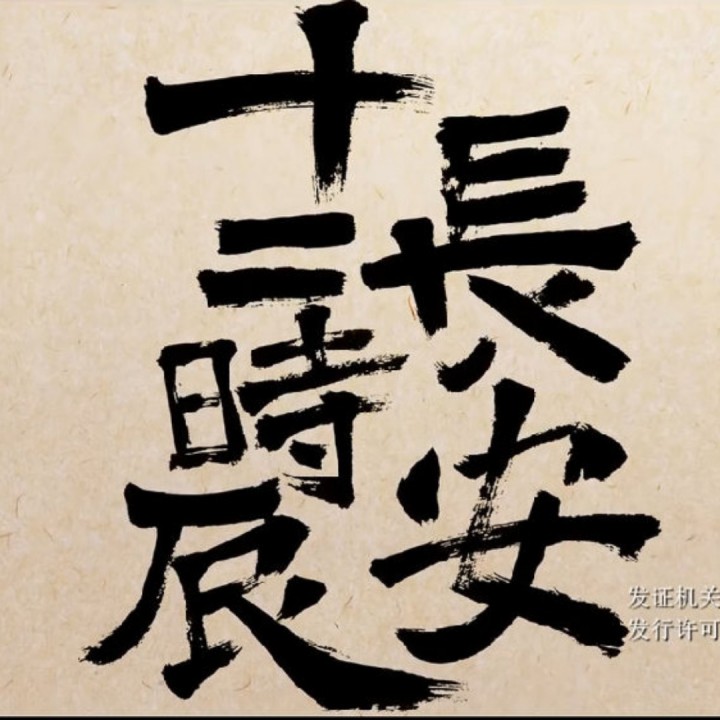 長安
十二時辰
发证机关
发行许可